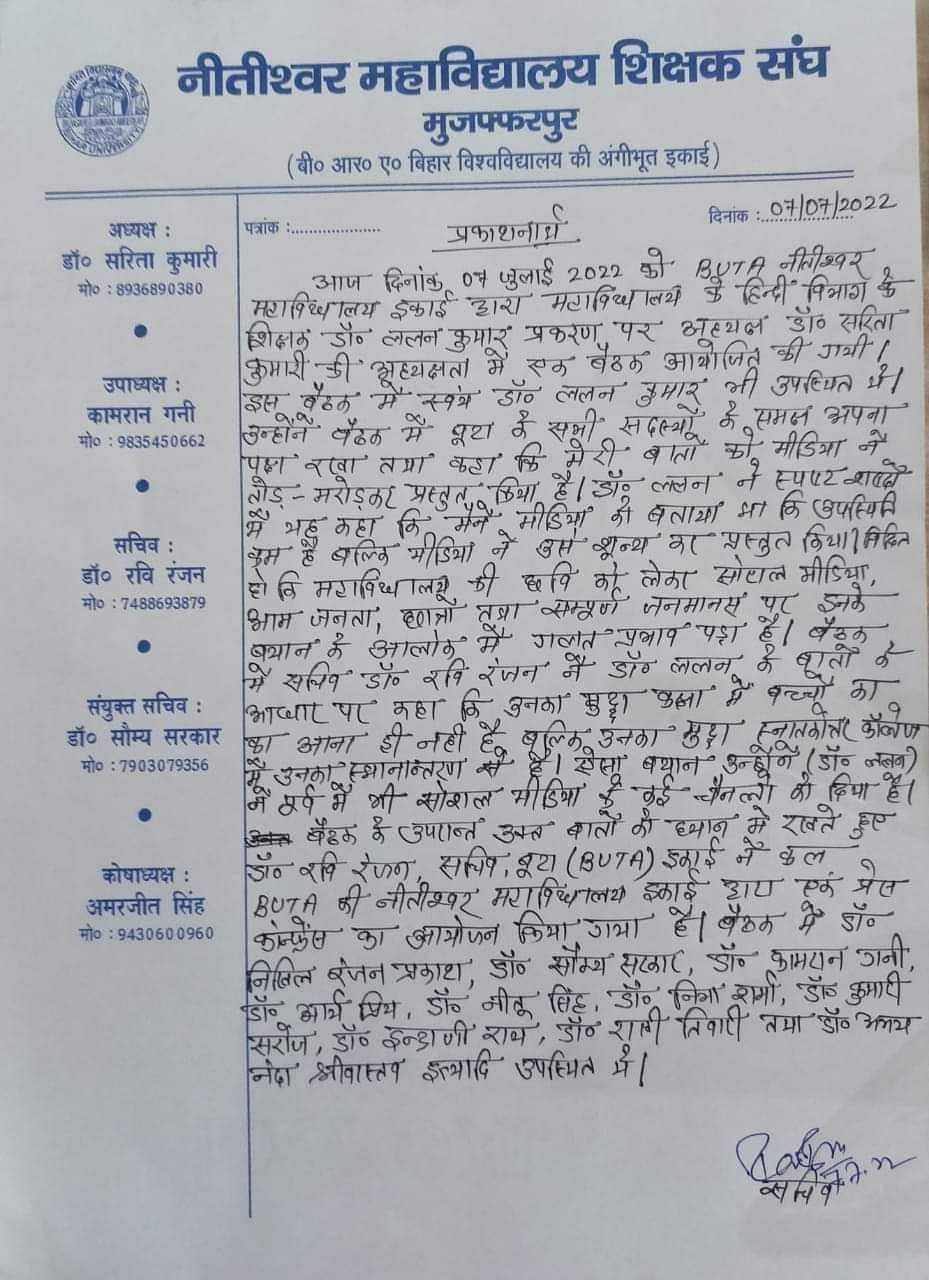 नीतीश्वर महाविद्यालय शिक्षक संघ
मुजफ्फरपुर
(बी० आर० ए० बिहार विश्वविद्यालय की अंगीभूत इकाई)
अध्यक्ष :
डॉ० सरिता कुमारी
मो० : 8936890380
उपाध्यक्ष :
कामरान गनी
मो० : 9835450662
सचिव :
डॉ० रवि रंजन
मो० : 7488693879
संयुक्त सचिव :
डॉ० सौम्य सरकार
मो० : 7903079356
कोषाध्यक्ष :
अमरजीत सिंह
मो० : 9430600960
पत्रांक :....................
दिनांक : 07/07/2022
प्रकाशनार्थ
आज दिनांक 07 जुलाई 2022 को BUTA नीतीश्वर
महाविध्यालय इकाई द्वारा महाविध्यालय के हिन्दी विभाग के
शिक्षक डॉ० ललन कुमार प्रकरण पर अध्यक्ष डॉ० सरिता
कुमारी की अध्यक्षता में एक बैठक आयोजित की गयी।
इस बैठक में स्वयं डॉ० ललन कुमार भी उपस्थित थे।
उन्होंने बैठक में बूटा के सभी सदस्यों के समक्ष अपना
पक्ष रखा तथा कहा कि मेरी बातों को मीडिया ने
तोड़-मरोड़कर प्रस्तुत किया है। डॉ० ललन ने स्पष्ट शब्दों
में यह कहा कि मैंने मीडिया को बताया था कि उपस्थिति
कम है बल्कि मीडिया ने उसे शून्य कर प्रस्तुत किया। विदित
हो कि महाविध्यालय की छवि को लेकर सोशल मीडिया,
आम जनता, छात्रों तथा सम्पूर्ण जनमानस पर इनके
बयान के आलोक में गलत प्रभाव पड़ा है। बैठक
में सचिव डॉ० रवि रंजन ने डॉ० ललन के बातों के
आधार पर कहा कि उनका मुद्दा कक्षा में बच्चों का
का आना ही नहीं है बल्कि उनका मुद्दा स्नातकोत्तर कॉलेज
में उनका स्थानान्तरण से है। ऐसा बयान उन्होंने (डॉ० ललन)
ने पूर्व में भी सोशल मीडिया के कई चैनलों को दिया है।
बैठक के उपरान्त उक्त बातों को ध्यान में रखते हुए
डॉ० रवि रंजन, सचिव, बूटा (BUTA) इकाई ने कल
BUTA की नीतीश्वर महाविध्यालय इकाई द्वारा एक प्रेस
कांफ्रेंस का आयोजन किया गया है। बैठक में डॉ०
निखिल रंजन प्रकाश, डॉ० सौम्य सरकार, डॉ० कामरान गनी,
डॉ० आर्य प्रिय, डॉ० नीतू सिंह, डॉ० निभा शर्मा, डॉ० कुमारी
सरोज, डॉ० इन्द्राणी राय, डॉ० तिवारी तथा डॉ०
नंदा श्रीवास्तव इत्यादि उपस्थित थे।
सचिव